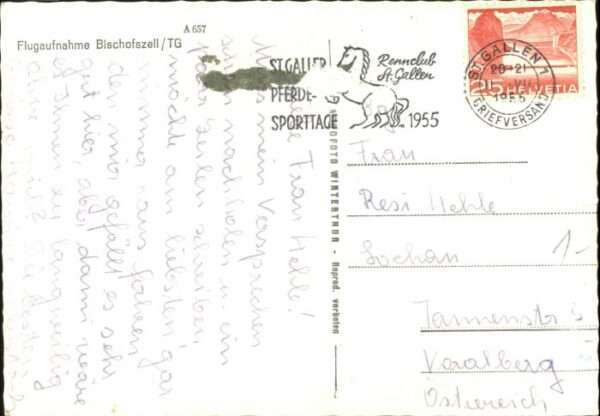 A 657
Flugaufnahme Bischofszell/TG
ST.GALLER
PFERDE-
SPORTTAGE
Rennclub
St.Gallen
1955
ST. GALLEN 1
20-21
1955
BRIEFVERSAND
25 HELVETIA
WINTERTHUR - Reprod. verboten
Frau Hehle!
Muss mein Versprechen
nachholen u. ein
paar Zeilen schreiben,
möchte am liebsten gar
nimmer naus fahren
denn mir gefällt es sehr
gut hier aber, dann wäre
es Ihnen zu langweilig
Frau
Resi Hehle
Lochau
1-
Tannenstr
Voralberg
Östereich